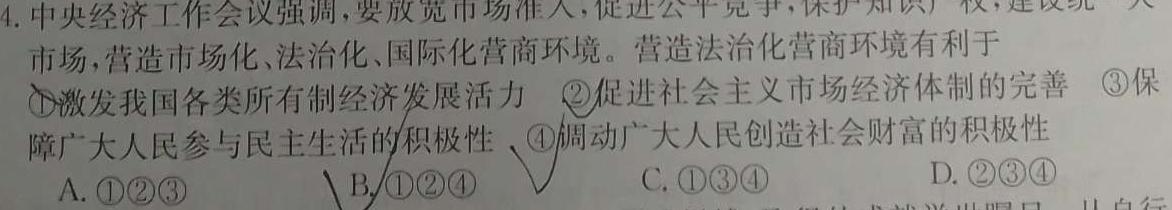 4. 中央经济工作会议强调,要放宽市场准入,促进公平竞争,保护知识产权,建设统一大
市场,营造市场化、法治化、国际化营商环境。营造法治化营商环境有利于
①激发我国各类所有制经济发展活力 ②促进社会主义市场经济体制的完善 ③保
障广大人民参与民主生活的积极性 ④调动广大人民创造社会财富的积极性
A. ①②③ B. ①②④ C. ①③④ D. ②③④